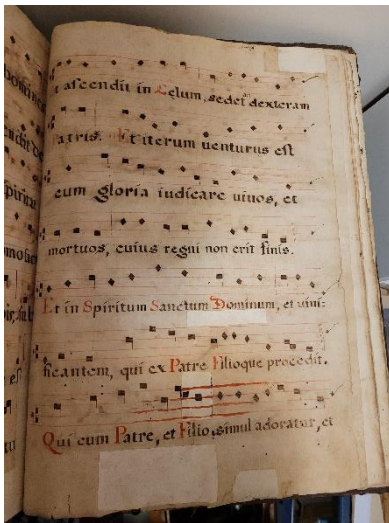 t ascendit in Cęlum, sedet dexteram
Patris. Et iterum uenturus est
cum gloria iudicare uiuos, et
mortuos, cuius regni non erit finis.
Et in Spiritum Sanctum Dominum, et uiui:
ficantem, qui ex Patre Filioque procedit.
Qui cum Patre, et Filio, simul adoratur, et